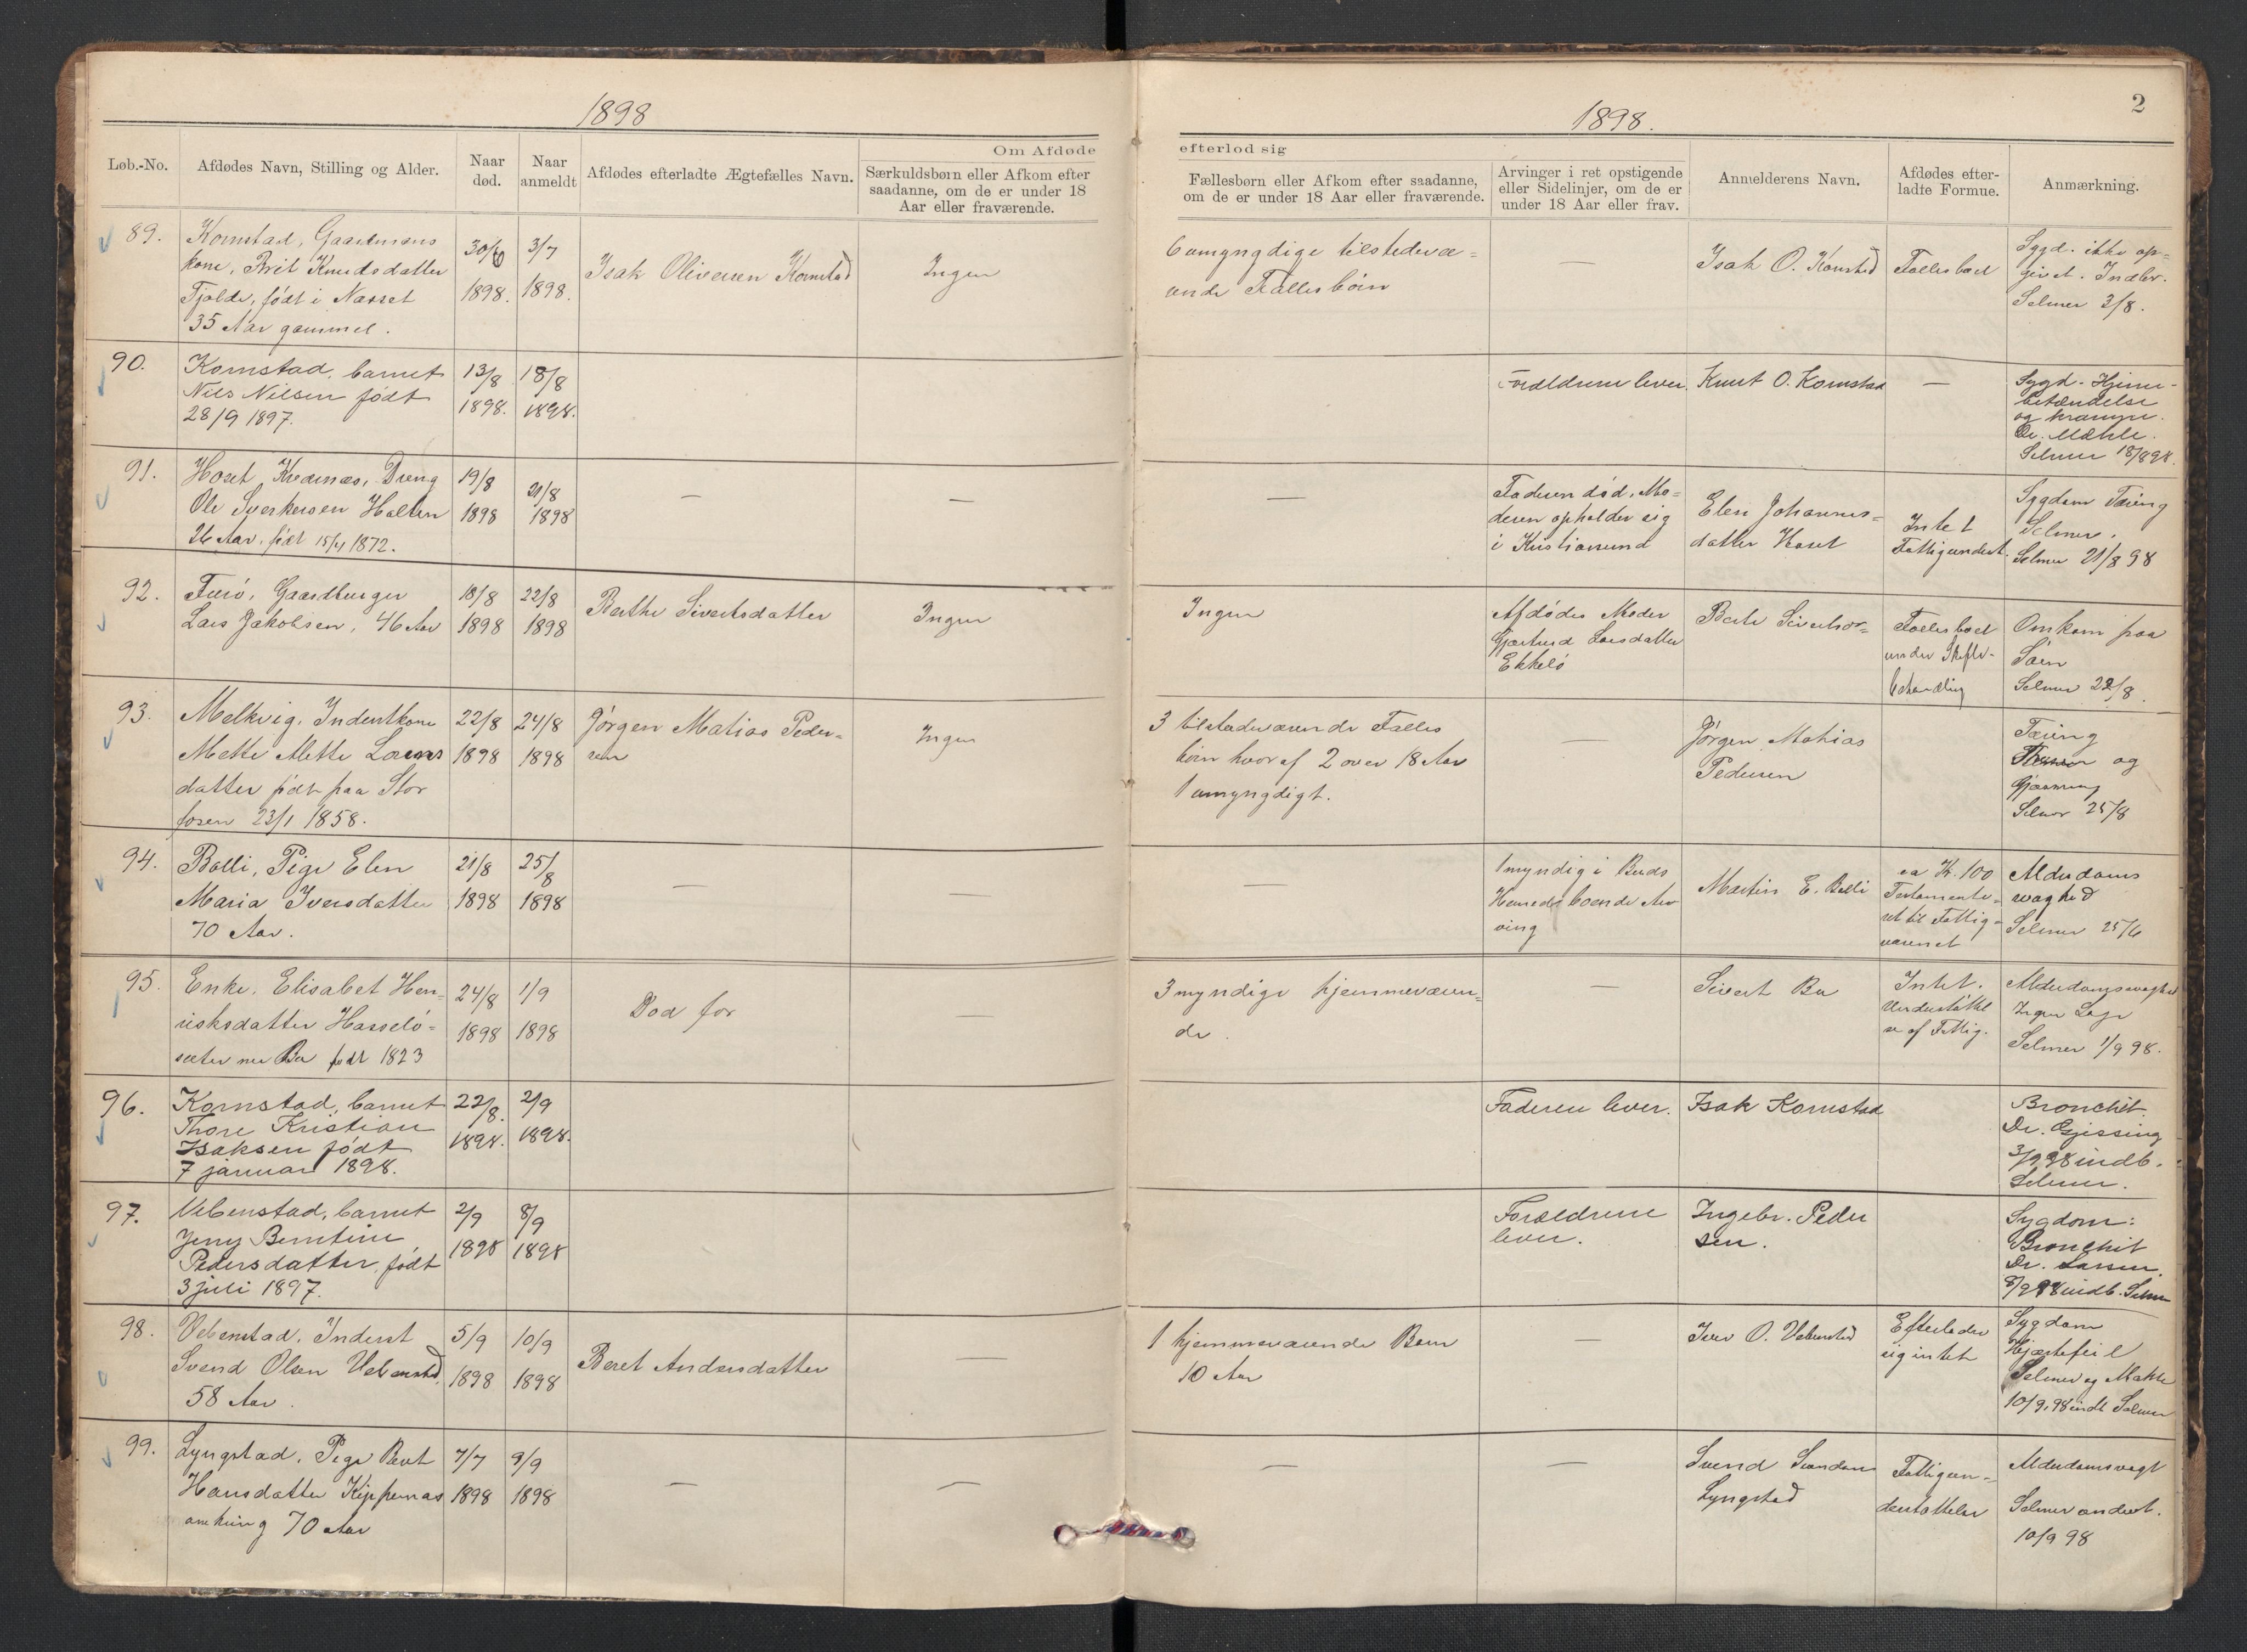 1898
1898.
2
Om Afdøde
efterlod sig
Løb.-No.
Afdødes Navn, Stilling og Alder.
Naar død.
Naar anmeldt
Afdødes efterladte Ægtefælles Navn.
Særkuldsbørn eller Afkom efter
saadanne, om de er under 18
Aar eller fraværende.
Fællesbørn eller Afkom efter saadanne,
om de er under 18 Aar eller fraværende.
Arvinger i ret opstigende
eller Sidelinjer, om de er
under 18 Aar eller frav.
Anmelderens Navn.
Afdødes efter-
ladte Formue.
Anmærkning.
89.
Kornstad, Gaardmans
kone, Brit Knudsdatter
Tjelde, født i Nesset
35 Aar gammel.
30/6
1898.
3/7
1898.
Isak Oliversen Kornstad
Ingen
6 umyngdige tilstedevæ-
ende Fællesbørn
—
Isak O. Kornstad
Fællesboet
Sygd. ikke op-
givet. Indbr.
Selmer 3/8.
90.
Kornstad, barnet
Nils Nilsen født
28/9 1897.
13/8
1898.
18/8
1898.
Forældrene lever.
Knut O. Kornstad
—
Sygd. Hjerne-
betændelse
og krampe.
Dr. Mæhle.
Selmer 18/8 98.
91.
Hoset, Kvernæs, Dreng
Ole Sverkersen Halten
26 Aar, født 15/4 1872.
19/8
1898
21/8
1898
—
—
—
Faderen død, Mo-
deren opholder sig
i Kristiansund
Elen Johannes-
datter Hoset
Intet
Fattigunderst.
Sygdom Tæring
Selmer.
Selmer 21/8 98
92.
Furø, Gaardbruger
Lars Jakobsen, 46 Aar
18/8
1898
22/8
1898
Berthe Sivertsdatter
Ingen
Ingen
Afdødes Moder
Gjertrud Larsdatter
Ekkelø
Fællesboet
under Skifte-
behandling
Omkom paa
Søen
Selmer 22/8.
93.
Melkvig, Inderstkone
Mette Mette Lorens
datter født paa Stor
fosen 23/1 1858.
22/8
1898
24/8
1898
Jørgen Matias Peder-
sen
Ingen
3 tilstedeværende Fælles
børn hvoraf 2 over 18 Aar
1 umyngdigt.
—
Jørgen Mathias
Pedersen
Tæring
og
Selmer 25/8
94.
Bolli, Pige Elen
Maria Iversdatter
70 Aar.
21/8
1898
25/8
1898
—
—
—
1 myndig i Buds
Herred boende Ar
ving
Martin E. Bolli
ca Kr. 100
Testamente-
ret til Fattig-
væsenet
Alderdoms
svaghed
Selmer 25/8
95.
Enke, Elisabet Hen-
riksdatter Hasselø-
sæter nu Bu født 1823
24/8
1898
1/9
1898
Død før
—
3 myndige hjemmeværen-
de.
—
Sivert Bu
Intet.
Understøttel
se af Fattig.
Alderdomssvaghed
Ingen Læge
Selmer 1/9 98.
96.
Kornstad, barnet
Thore Kristian
Isaksen født
7 januar 1898.
22/8.
1898.
2/9
1898.
Faderen lever.
Isak Kornstad
Bronchit.
Dr. Gjessing
3/9 98 indb.
Selmer.
97.
Vebenstad, barnet
Jenny Berntine
Pedersdatter, født
3 juli 1897.
2/9
1898
8/9
1898
Forældrene
lever.
Ingebr. Peder
sen.
Sygdom:
Bronchit
Dr. Larsen.
8/9 98 indb. Selmer
98.
Vebenstad, Inderst
Svend Olsen Vebenstad,
58 Aar.
5/9
1898
10/9
1898
Beret Andersdatter
—
1 hjemmeværende Barn
10 Aar
—
Iver O. Vebenstad
Efterlader
sig intet
Sygdom
Hjertefeil
Selmer og Mæhle
10/9.98 indb Selmer
99.
Lyngstad, Pige Beret
Hansdatter Kippernæs
omkring 70 Aar
7/7
1898
9/9
1898
—
—
—
—
Svend Svendsen
Lyngstad
Fattigun-
derstøttelse
Alderdomsvagt
Selmer anderst.
10/9 98